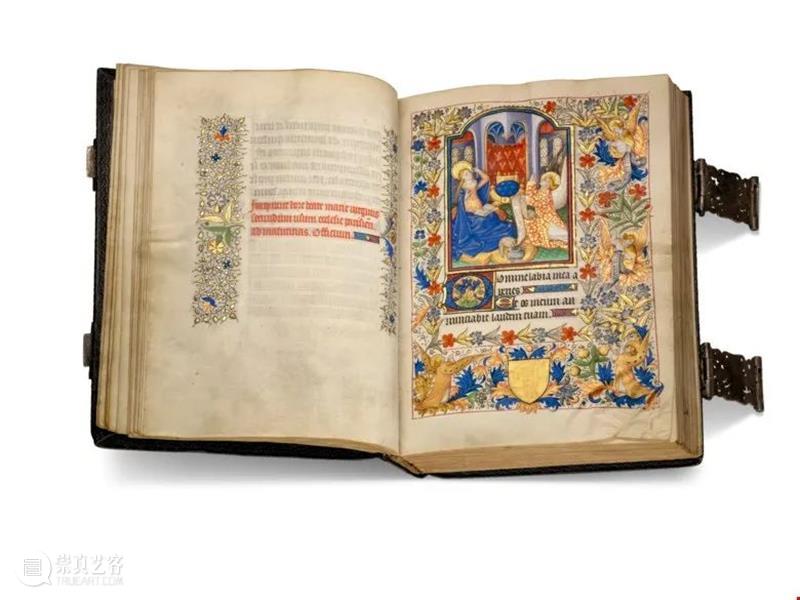 Incipiunt hore beate marie virginis
secundum usum ecclesie parisien.
ad matutinas. Officium.
Domine labia mea a
peries
Et os meum an
nunciabit laudem tuam.
崇真艺客
TRUEART.COM